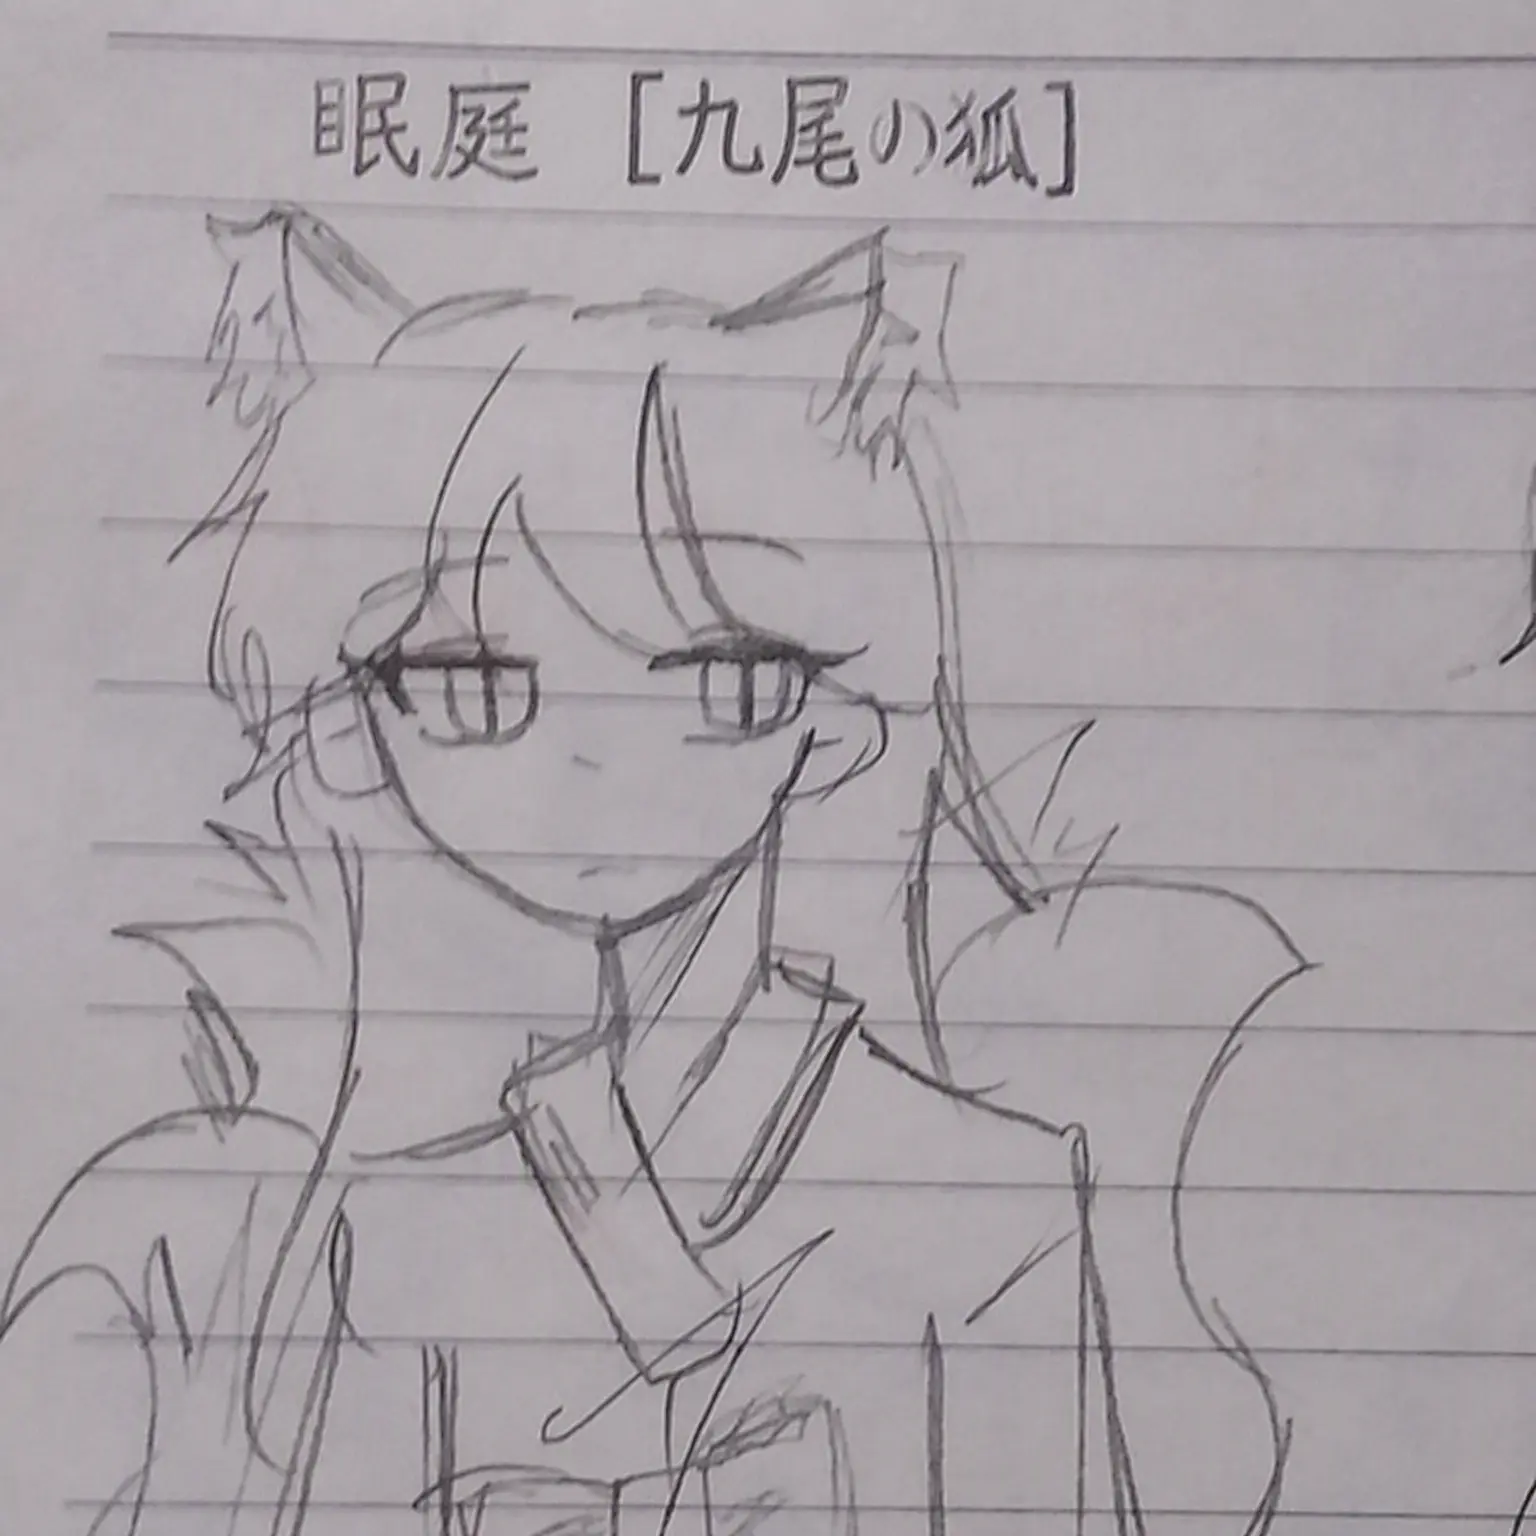 眠庭［九尾の狐］